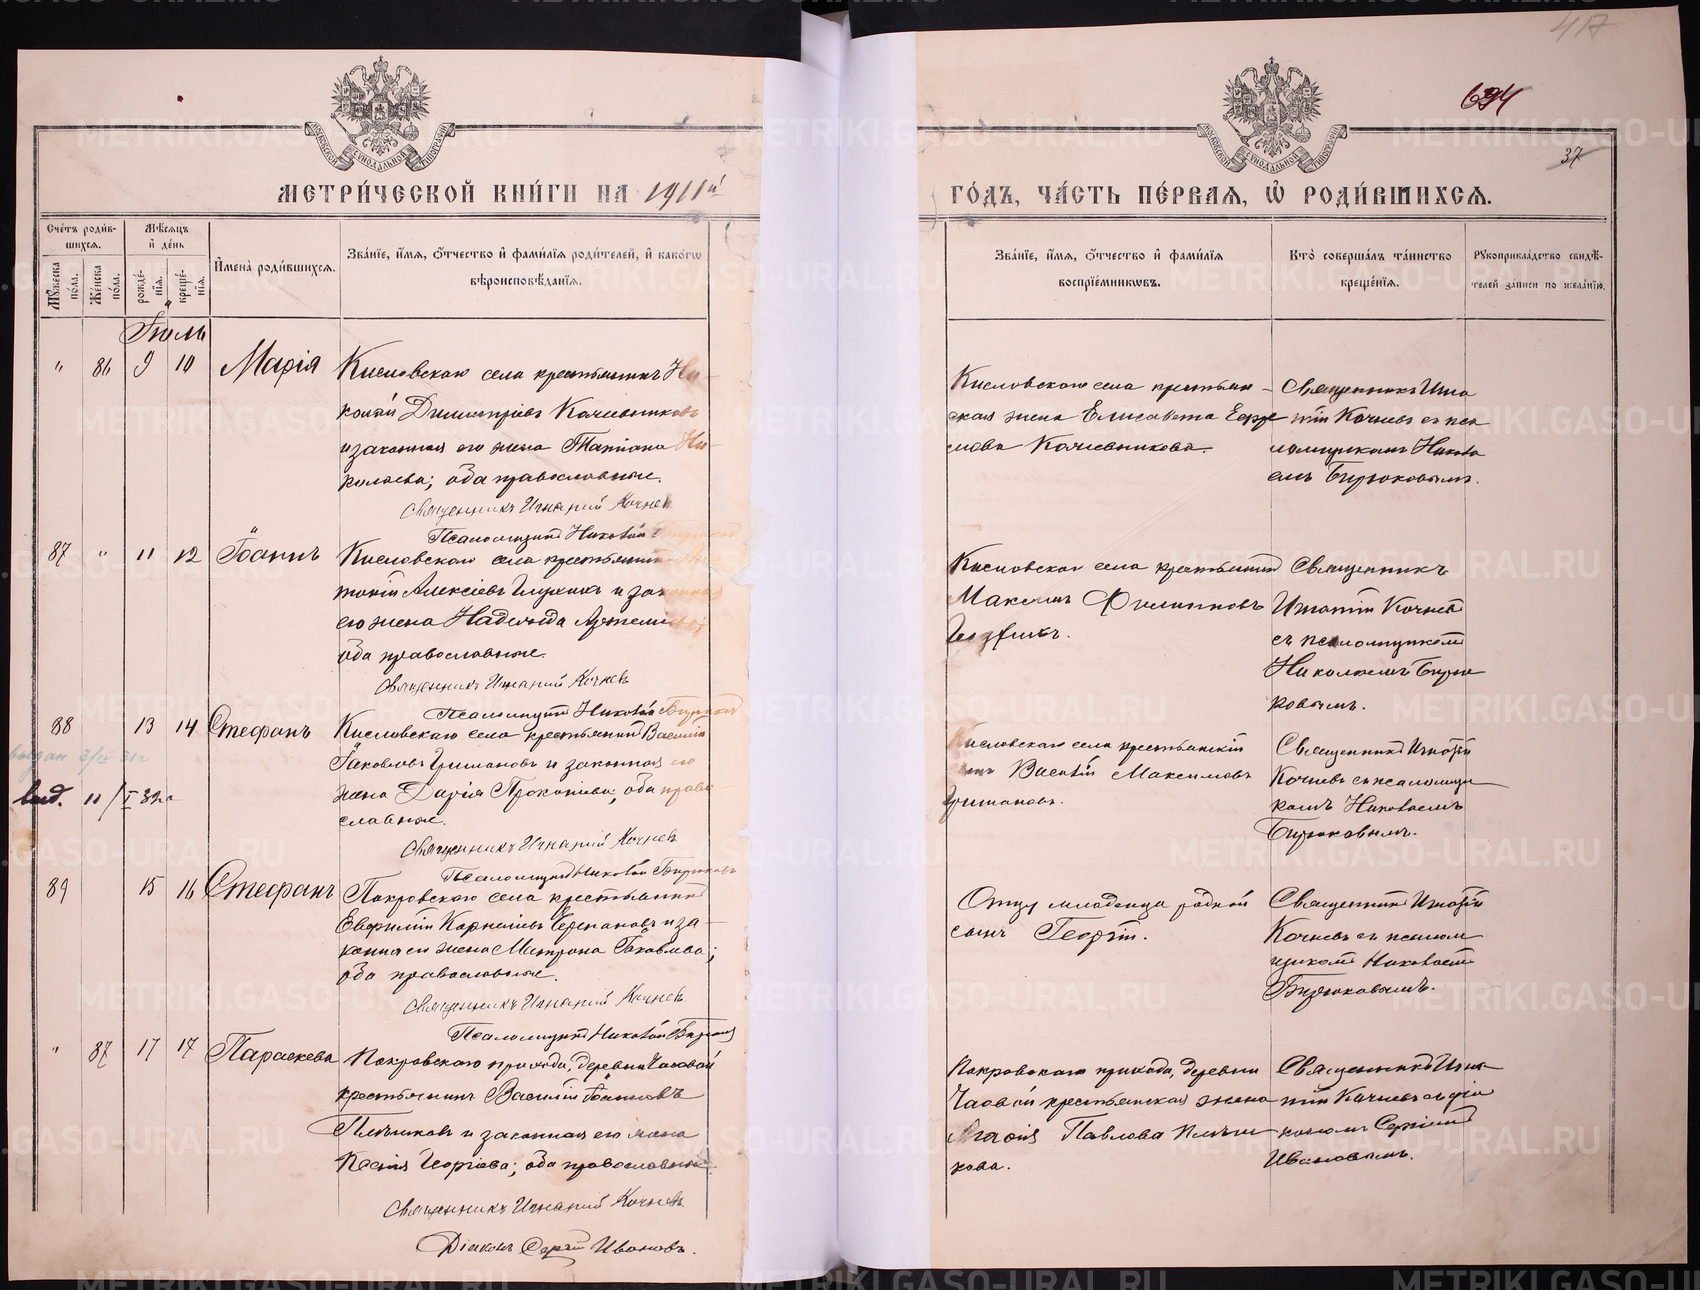 47
694
37
МЕТРИ́ЧЕСКОЙ КНИ́ГИ НА 1911й
ГО́ДЪ, ЧА́СТЬ ПЕ́РВАЯ, Ѡ РОДИ́ВШИХСЯ.
Сче́тъ роди́в-
шихся.
Мѣ́сяцъ
и҆ де́нь
Мꙋ́жеска по́ла.
Же́нска по́ла.
рожде́-
нїя.
креще́-
нїя.
И҆мена̀ роди́вшихся.
Зва́нїе, и҆́мя, ѻ҆́тчество и҆ фами́лїя роди́телей, и҆ како́гѡ
вѣроисповѣ́данїя.
Зва́нїе, и҆́мя, ѻ҆́тчество и҆ фами́лїя
воспрїе́мникѡвъ.
Кто̀ соверша́лъ та́инство
креще́нїя.
Рꙋкоприкла́дство свидѣ́-
телей за́писи по жела́нїю.
Іюль
" 86 9 10 Марія
Кисловскаго села крестьянинъ Ни-
колай Димитріевъ Колчевниковъ
и законная его жена Татіана Ни-
колаева; оба православные.
Священникъ Игнатій Кочневъ
Псаломщикъ Николай
Кисловскаго села крестьян-
ская жена Елисавета
Священникъ Игна
тій Кочневъ съ пса
ломщикомъ Никола
емъ Бирюковымъ.
87 " 11 12 Іоаннъ
Кисловскаго села крестьянинъ
Алексіевъ и законная
его жена Надежда Артеміева;
оба православные.
Священникъ Игнатій Кочневъ
Псаломщикъ Николай Бирюковъ
Кисловскаго села крестьянинъ
Максимъ Филипповъ
Священникъ
Игнатій Кочневъ
съ псаломщикомъ
Николаемъ Бирю
ковымъ.
88 13 14 Стефанъ
Кисловскаго села крестьянинъ Василій
Іаковлевъ и законная его
жена Дарія Прокопіева; оба право-
славные.
Священникъ Игнатій Кочневъ
Псаломщикъ Николай Бирюковъ
Кисловскаго села крестьянскій
сынъ Василій Максимовъ
Священникъ Игнатій
Кочневъ съ псаломщи
комъ Николаемъ
Бирюковымъ.
89 15 16 Стефанъ
Покровскаго села крестьянинъ
Евфимій Корниліевъ Черепановъ и за-
конная его жена Матрона Іаковлева;
оба православные.
Священникъ Игнатій Кочневъ
Псаломщикъ Николай Бирюковъ
Отцу младенца родной
сынъ Георгій.
Священникъ Игнатій
Кочневъ съ псалом
щикомъ Николаемъ
Бирюковымъ.
" 87 17 17 Параскева
Покровскаго прихода, деревни Часовой
крестьянинъ Василій Іоанновъ
и законная его жена
Ксенія Георгіева; оба православные.
Священникъ Игнатій Кочневъ
Діаконъ Сергій Ивановъ.
Покровскаго прихода, деревни
Часовой крестьянская жена
Павлова
Священникъ Игна-
тій Кочневъ съ діа
кономъ Сергіемъ
Ивановымъ.
METRIKI.GASO-URAL.RU